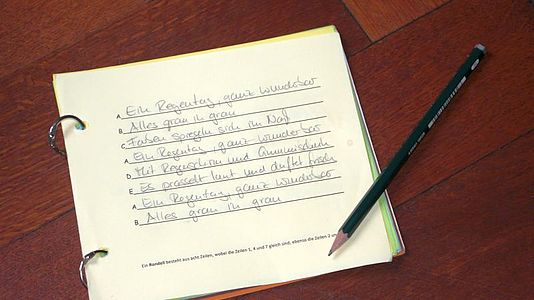 A Ein Regentag, ganz wunderbar
B Alles grau in grau
C Farben spiegeln sich im Naß
A Ein Regentag, ganz wunderbar
D Mit Regenschirm und Gummischuh
E Es prasselt laut und duftet frisch
A Ein Regentag, ganz wunderbar
B Alles grau in grau
Ein Rondell besteht aus acht Zeilen, wobei die Zeilen 1, 4 und 7 gleich sind, ebenso die Zeilen 2 un